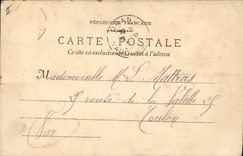 RÉPUBLIQUE FRANÇAISE
CARTE POSTALE
Ce côté est exclusivement réservé à l'adresse
Mademoiselle M. L. Mathis
25 route de la Valette 25
Toulon
Var